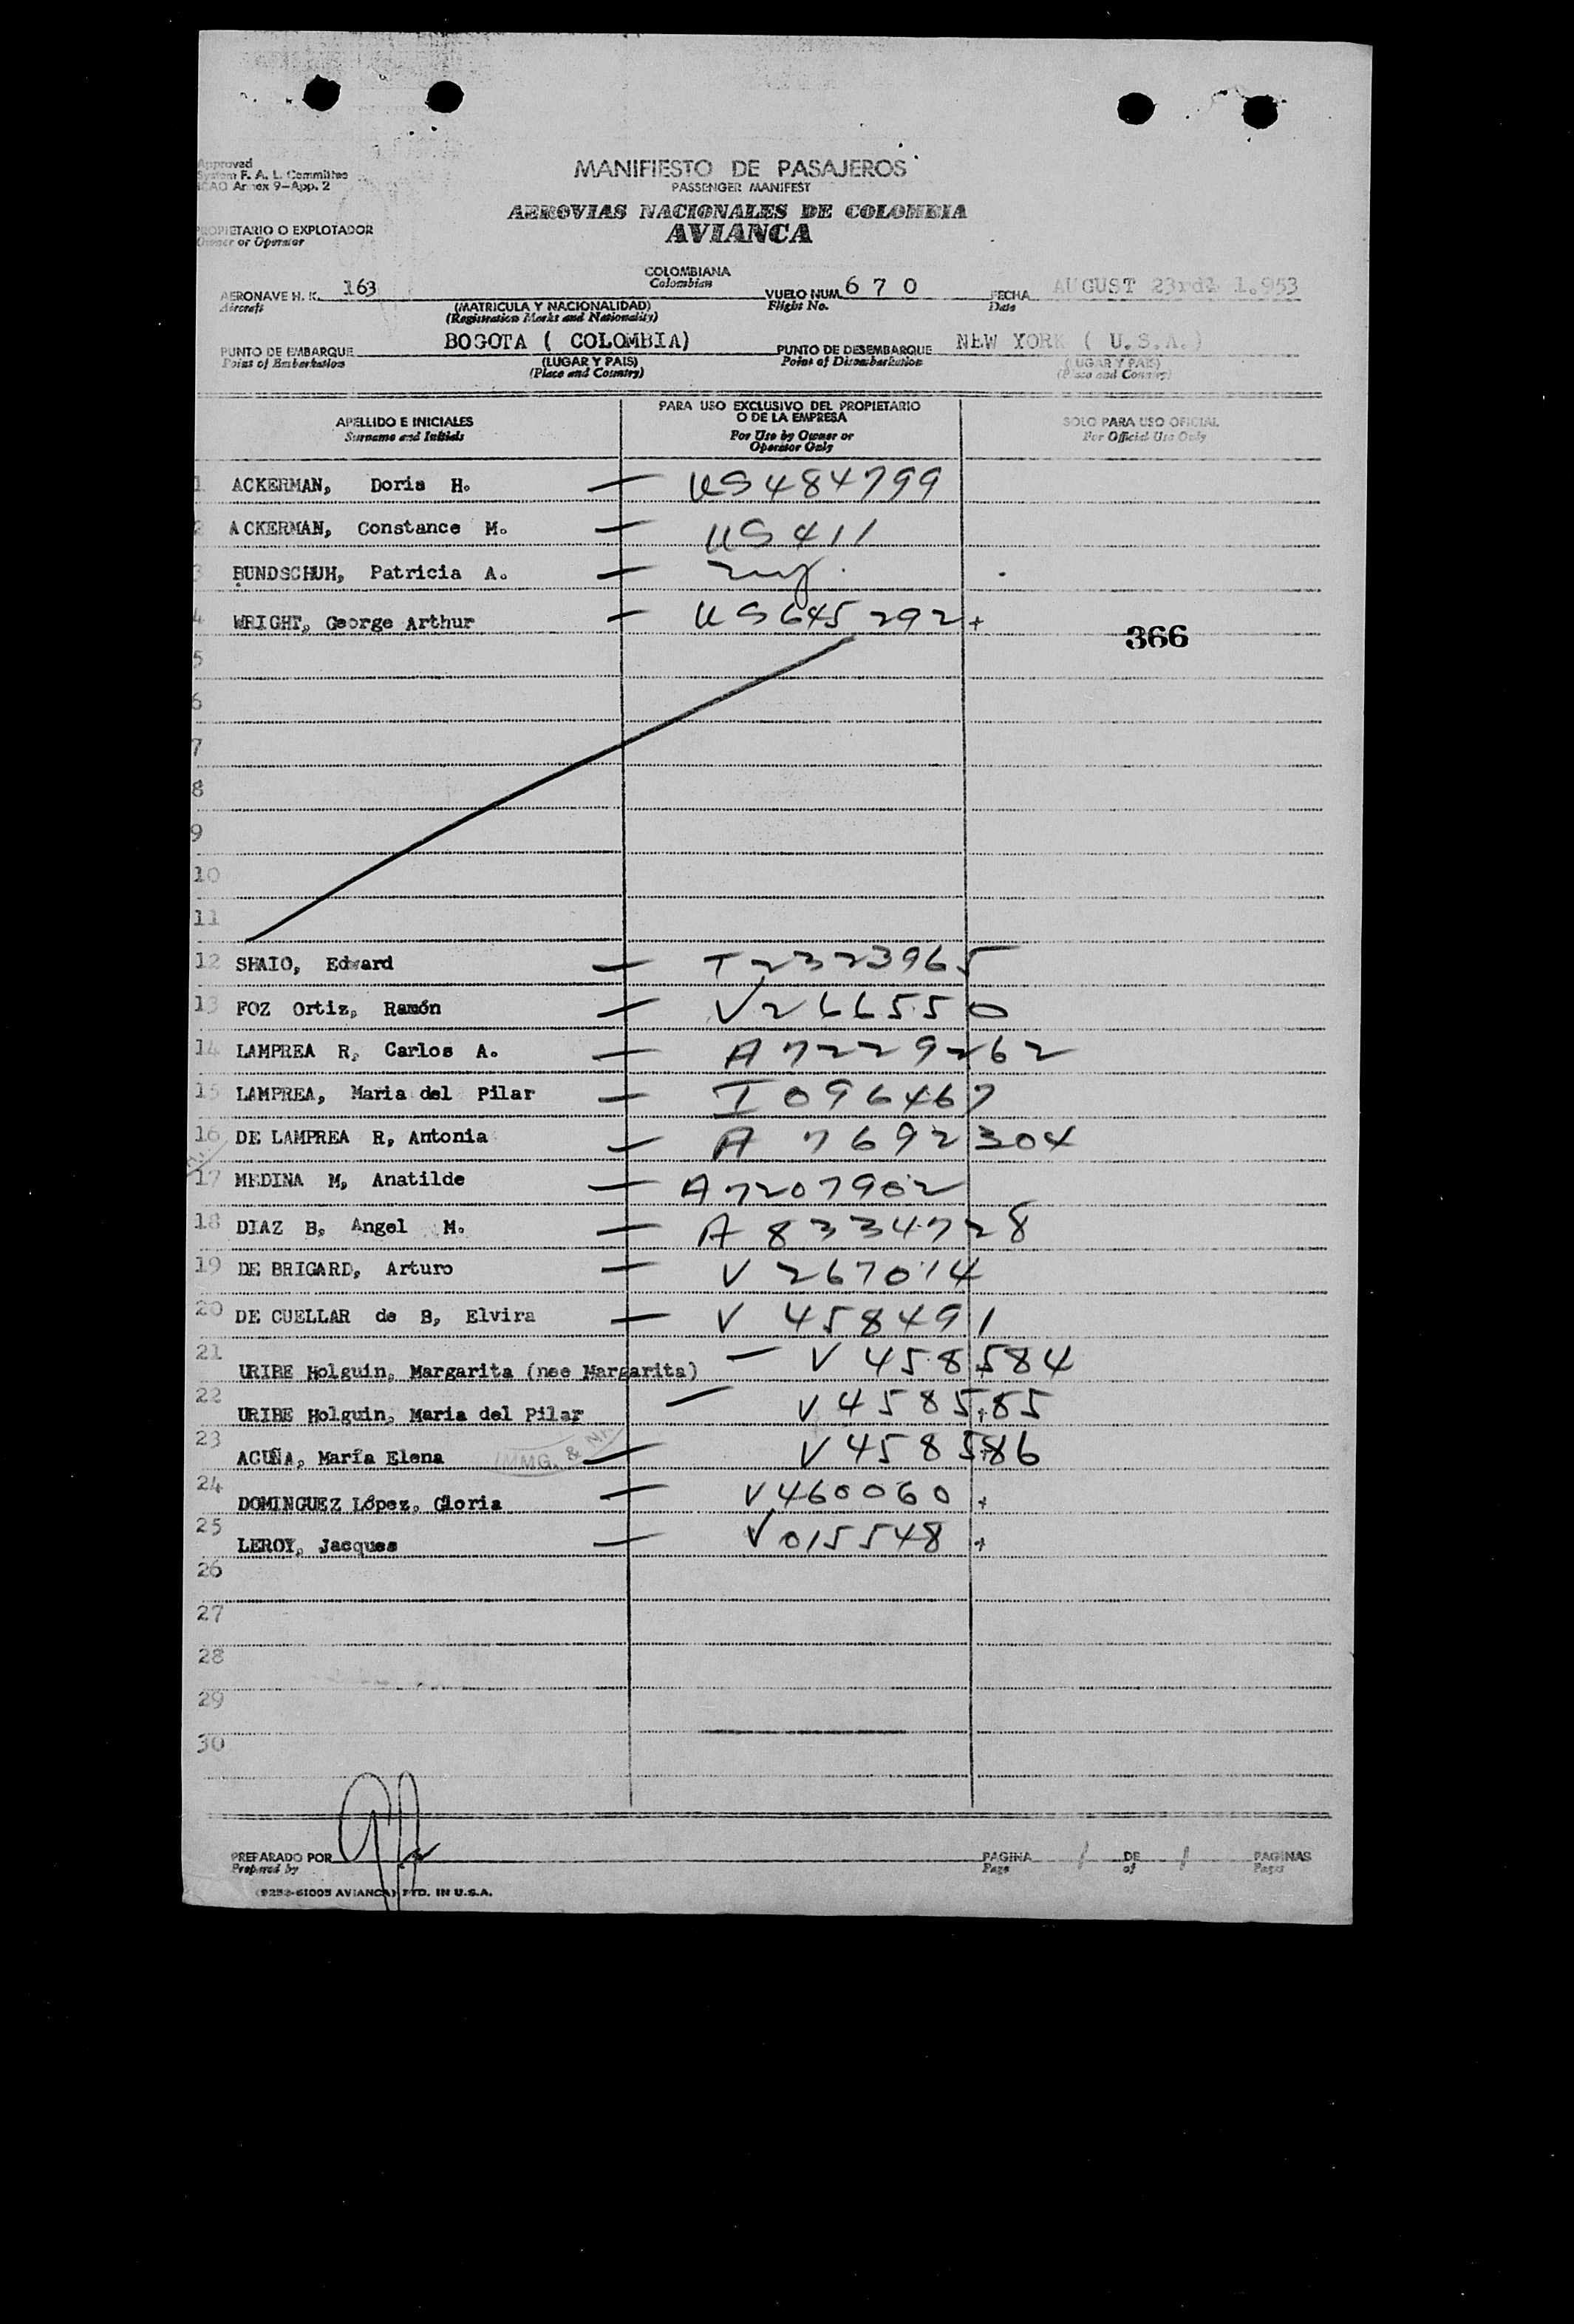 Approved
System F. A. L. Committee
ICAO Annex 9-App. 2
MANIFIESTO DE PASAJEROS
PASSENGER MANIFEST
AEROVIAS NACIONALES DE COLOMBIA
AVIANCA
PROPIETARIO O EXPLOTADOR
Owner or Operator
AERONAVE H. K. 163 COLOMBIANA VUELO NUM. 6 7 0 FECHA AUGUST 23rd 1.953
Aircraft Colombian Flight No. Date
(MATRICULA Y NACIONALIDAD)
(Registration Marks and Nationality)
PUNTO DE EMBARQUE BOGOTA ( COLOMBIA) PUNTO DE DESEMBARQUE NEW YORK ( U.S.A.)
Point of Embarkation (LUGAR Y PAIS) Point of Disembarkation (LUGAR Y PAIS)
(Place and Country) (Place and Country)
APELLIDO E INICIALES
Surname and Initials
PARA USO EXCLUSIVO DEL PROPIETARIO
O DE LA EMPRESA
For Use by Owner or
Operator Only
SOLO PARA USO OFICIAL
For Official Use Only
1 ACKERMAN, Doris H. — US484799
2 ACKERMAN, Constance M. — US 411
3 BUNDSCHUH, Patricia A. —
4 WRIGHT, George Arthur — US645292 +
366
5
6
7
8
9
10
11
12 SHAIO, Edward — T2323965
13 FOZ Ortiz, Ramón — V266550
14 LAMPREA R, Carlos A. — A7229262
15 LAMPREA, Maria del Pilar — I096467
16 DE LAMPREA R, Antonia — A 7692304
17 MEDINA M, Anatilde — A7207902
18 DIAZ B, Angel M. — A 8334728
19 DE BRIGARD, Arturo — V 267014
20 DE CUELLAR de B, Elvira — V 458491
21 URIBE Holguin, Margarita (nee Margarita) — V 458584
22 URIBE Holguin, Maria del Pilar — V458585
23 ACUÑA, María Elena — V458586
IMMG. &
24 DOMINGUEZ López, Gloria — V460060 +
25 LEROY, Jacques — V015548 +
26
27
28
29
30
PREPARADO POR PAGINA 1 DE 1 PAGINAS
Prepared by Page of Pages
(9252-61005 AVIANCA) PTD. IN U.S.A.